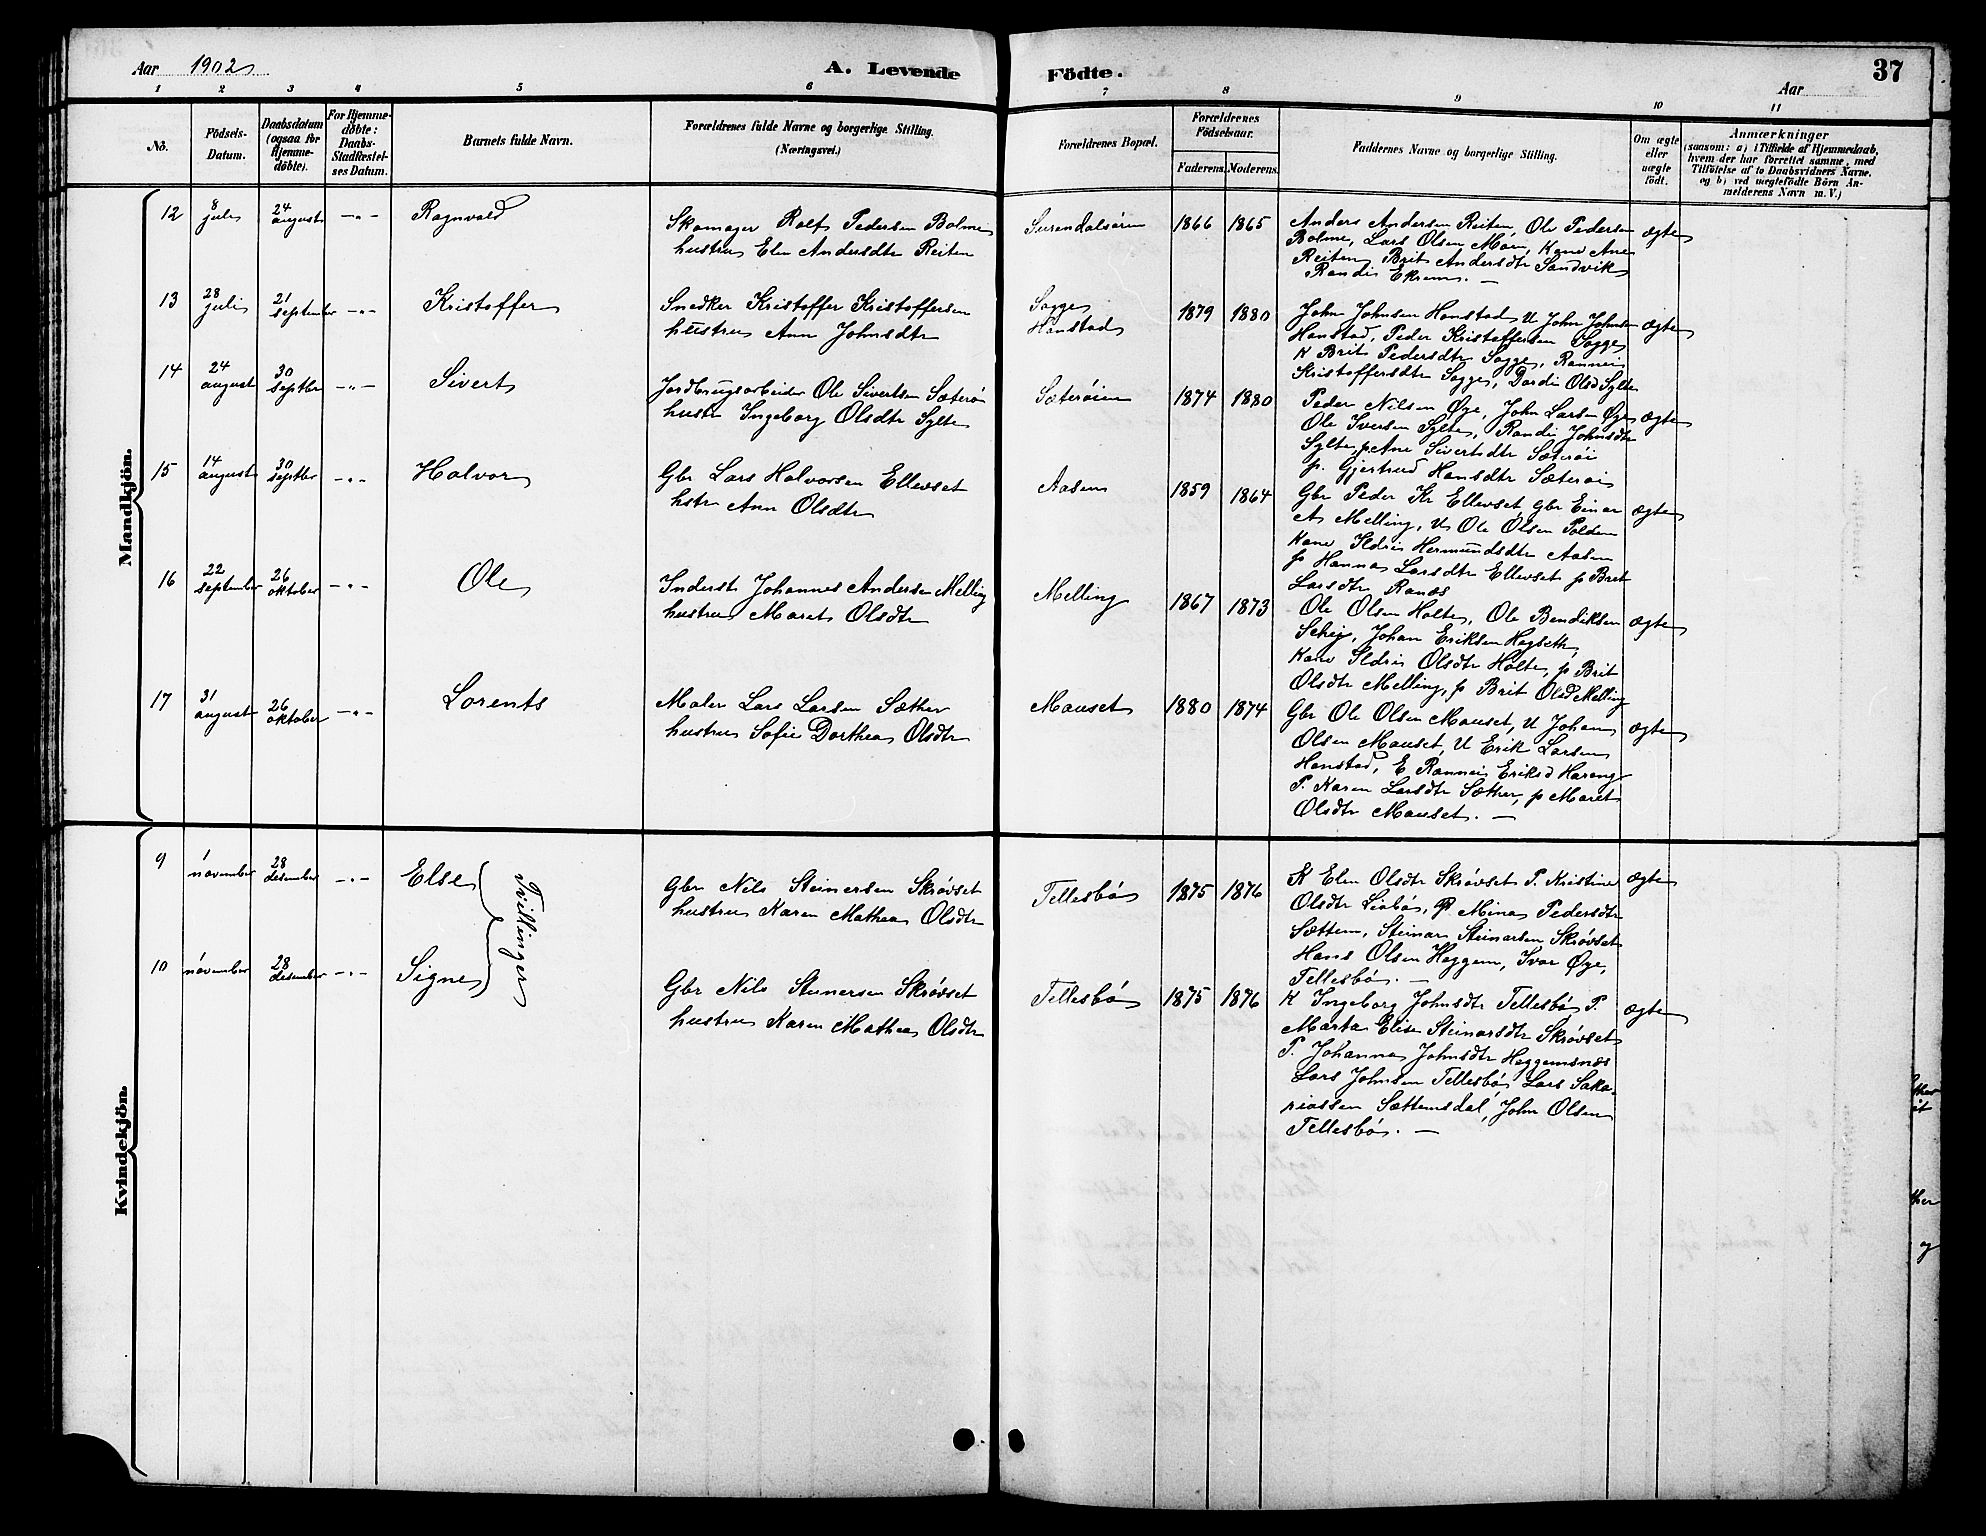 Aar 1902
A. Levende
Födte.
Aar
37
1 2 3 4 5 6 7 8 9 10 11
No.
Födsels-
Datum.
Daabsdatum
(ogsaa for
Hjemme-
döbte).
For Hjemme-
döbte:
Daabs-
Stadfæstel-
ses Datum.
Barnets fulde Navn.
Forældrenes fulde Navne og borgerlige Stilling.
(Næringsvei.)
Forældrenes Bopæl.
Forældrenes
Födselsaar.
Faderens. Moderens.
Faddernes Navne og borgerlige Stilling.
Om ægte
eller
uægte
födt.
Anmærkninger
(saasom: a) i Tilfælde af Hjemmedaab,
hvem der har forrettet samme, med
Tilföielse af to Daabsvidners Navne,
og b) ved uægtefödte Börn An-
melderens Navn m. V.)
Mandkjön.
12
8
juli
24
august
-"-
Ragnvald
Skomager Rolf Pedersen Bolme
hustru Elen Andersdtr Reiten
Surendalsören
1866 1865
Anders Andersen Reiten, Ole Pedersen
Bolme, Lars Olsen Moen, Kone Ane
Reiten, Brit Andersdtr Sandvik
Randi Ekrem. —
ægte
13
28
juli
21
september
-"-
Kristoffer
Snedker Kristoffer Kristoffersen
hustru Ann Johnsdtr
Sogge
Honstad
1879 1880
John Johnsen Honstad U John Johnsen
Honstad, Peder Kristoffersen Sogge
K Brit Pedersdtr Sogge, Rannei
Kristoffersdtr Sogge, Dordi Olsd Sylte
ægte
14
24
august
30
septbr
-"-
Sivert
Jordbrugsarbeider Ole Sivertsen Sæterö
hustr Ingeborg Olsdtr Sylte
Sæteröien
1874 1880
Peder Nilsen Øye, John Larsen Øye
Ole Iversen Sylte, Randi Johnsdtr
Sylte, p Ane Sivertsdtr Sæteröi
p. Gjertrud Hansdtr Sæteröi
ægte
15
14
august
30
septbr
-"-
Halvor
Gbr Lars Halvorsen Ellevset
hstr Ann Olsdtr
Aasen
1859 1864
Gbr Peder Kr Ellevset, Gbr Einar
A Melling, U Ole Olsen Polden
Kone Ildri Hermundsdtr Aasen
p Hanna Larsdtr Ellevset p Brit
Larsdtr Ranæs
ægte
16
22
september
26
oktober
-"-
Ole
Inderst Johannes Andersen Melling
hustru Maret Olsdtr
Melling
1867 1873
Ole Olsen Holten, Ole Bendiksen
Schei, Johan Eriksen Hegseth
Kone Ildri Olsdtr Holte, p Brit
Olsdtr Melling, p Brit Olsd Melling
ægte
17
31
august
26
oktober
-"-
Lorents
Maler Lars Larsen Sæther
hustru Sofie Dorthea Olsdtr
Mauset
1880 1874
Gbr Ole Olsen Mauset, U Johan
Olsen Mauset, U Erik Larsen
Honstad, E Rannei Eriksd Harang
P. Karen Larsdtr Sæther, p Maret
Olsdtr Mauset. —
ægte
Kvindekjön.
9
1
november
28
desember
-"-
Else
Tvillinger
Gbr Nils Steinersen Skrövset
hustru Karen Mathea Olsdtr
Tellesbö
1875 1876
K Elen Olsdtr Skrövset P. Kristine
Olsdtr Liabö, P Mina Pedersdtr
Sættem, Steinar Steinarsen Skrövset
Hans Olsen Heggem, Ivar Øye,
Tellesbö. —
ægte
10
1
november
28
desember
-"-
Signe
Gbr Nils Steinersen Skrövset
hustru Karen Mathea Olsdtr
Tellesbö
1875 1876
K Ingeborg Johnsdtr Tellesbö P.
Marta Elise Steinarsdtr Skrövset
P. Johanna Johnsdtr Heggemsnes
Lars Johnsen Tellesbö, Lars Saka-
riassen Sættemsdal, John Olsen
Tellesbö. —
ægte